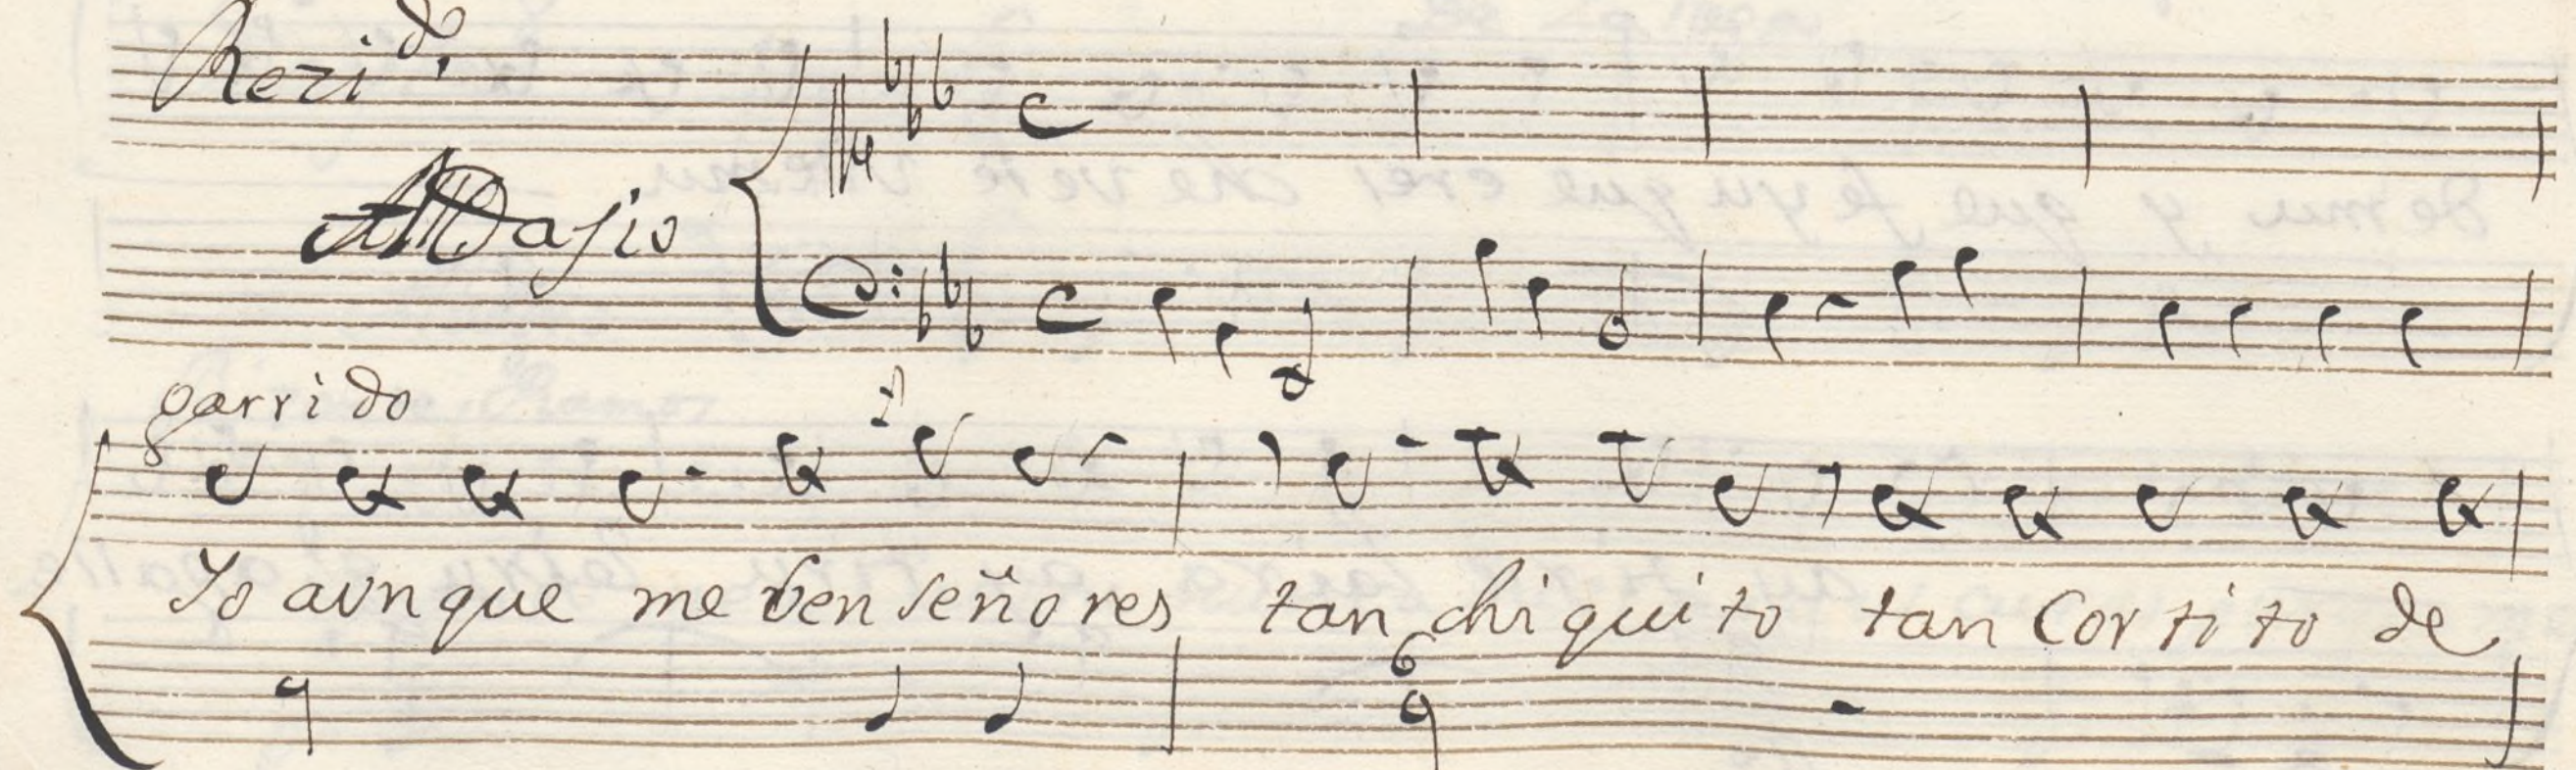 Rezi^do.
Adagio
garrido
Yo aunque me ven señores tan chiquito tan Cortito de
6